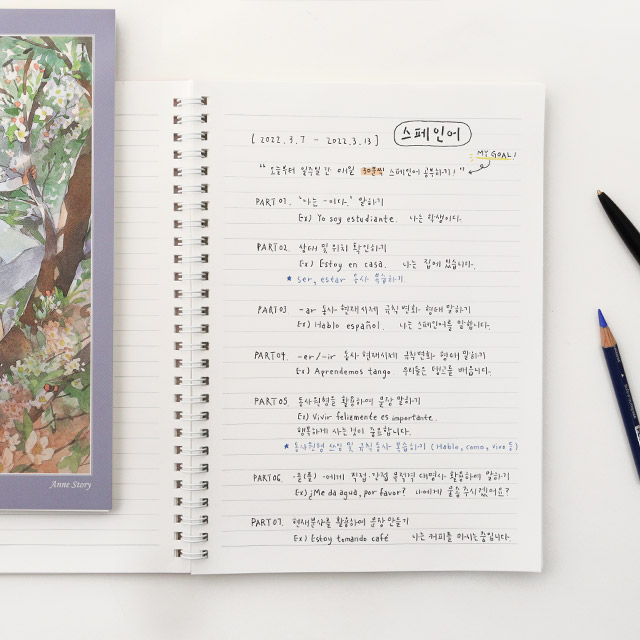 Anne Story
스페인어
[ 2022. 3. 7 - 2022. 3. 13 ]
MY GOAL!
"오늘부터 일주일간 매일 30분씩 스페인어 공부하기!"
PART 01. '나는 ~이다.' 말하기
Ex) Yo soy estudiante. 나는 학생이다.
PART 02. 상태 및 위치 확인하기
Ex) Estoy en casa. 나는 집에 있습니다.
★ ser, estar 동사 복습하기
PART 03 -ar 동사 현재시제 규칙변화 형태 말하기
Ex) Hablo español. 나는 스페인어를 말합니다.
PART 04. -er/-ir 동사 현재시제 규칙변화 형태 말하기
Ex) Aprendemos tango. 우리들은 탱고를 배웁니다.
PART 05 동사원형을 활용하여 문장 말하기
Ex) Vivir felizmente es importante.
행복하게 사는 것이 중요합니다.
★ 동사원형 쓰임 및 규칙동사 복습하기 (Hablo, como, vivo 등)
PART 06. -을(를) -에게 직접·간접 목적격 대명사 활용하여 말하기
Ex) ¿Me da agua, por favor? 나에게 물을 주시겠어요?
PART 07. 현재분사를 활용하여 문장 만들기
Ex) Estoy tomando café 나는 커피를 마시는 중입니다.